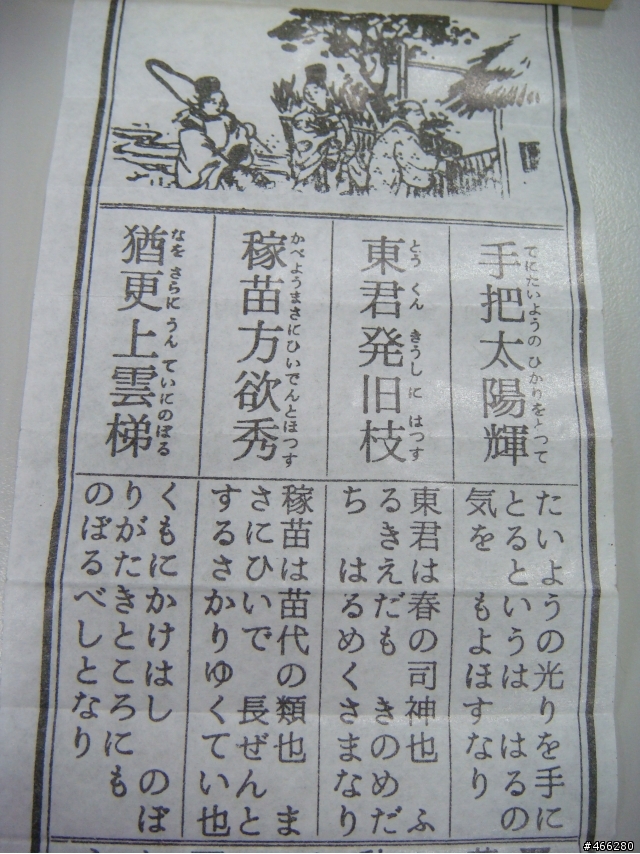 手把太陽輝
てにたいようの ひかりをとつて
東君発旧枝
とう くん きうし に はつす
稼苗方欲秀
かべようまさにひいでんとほつす
猶更上雲梯
なを さらに うん ていにのぼる
たいようの光りを手に
とるというは はるの
気を もよほすなり
東君は春の司神也 ふ
るきえだも きのめだ
ち はるめくさまなり
稼苗は苗代の類也 ま
さにひいで 長ぜんと
するさかりゆくてい也
くもにかけはし のぼ
りがたきところにも
のぼるべしとなり
#466280